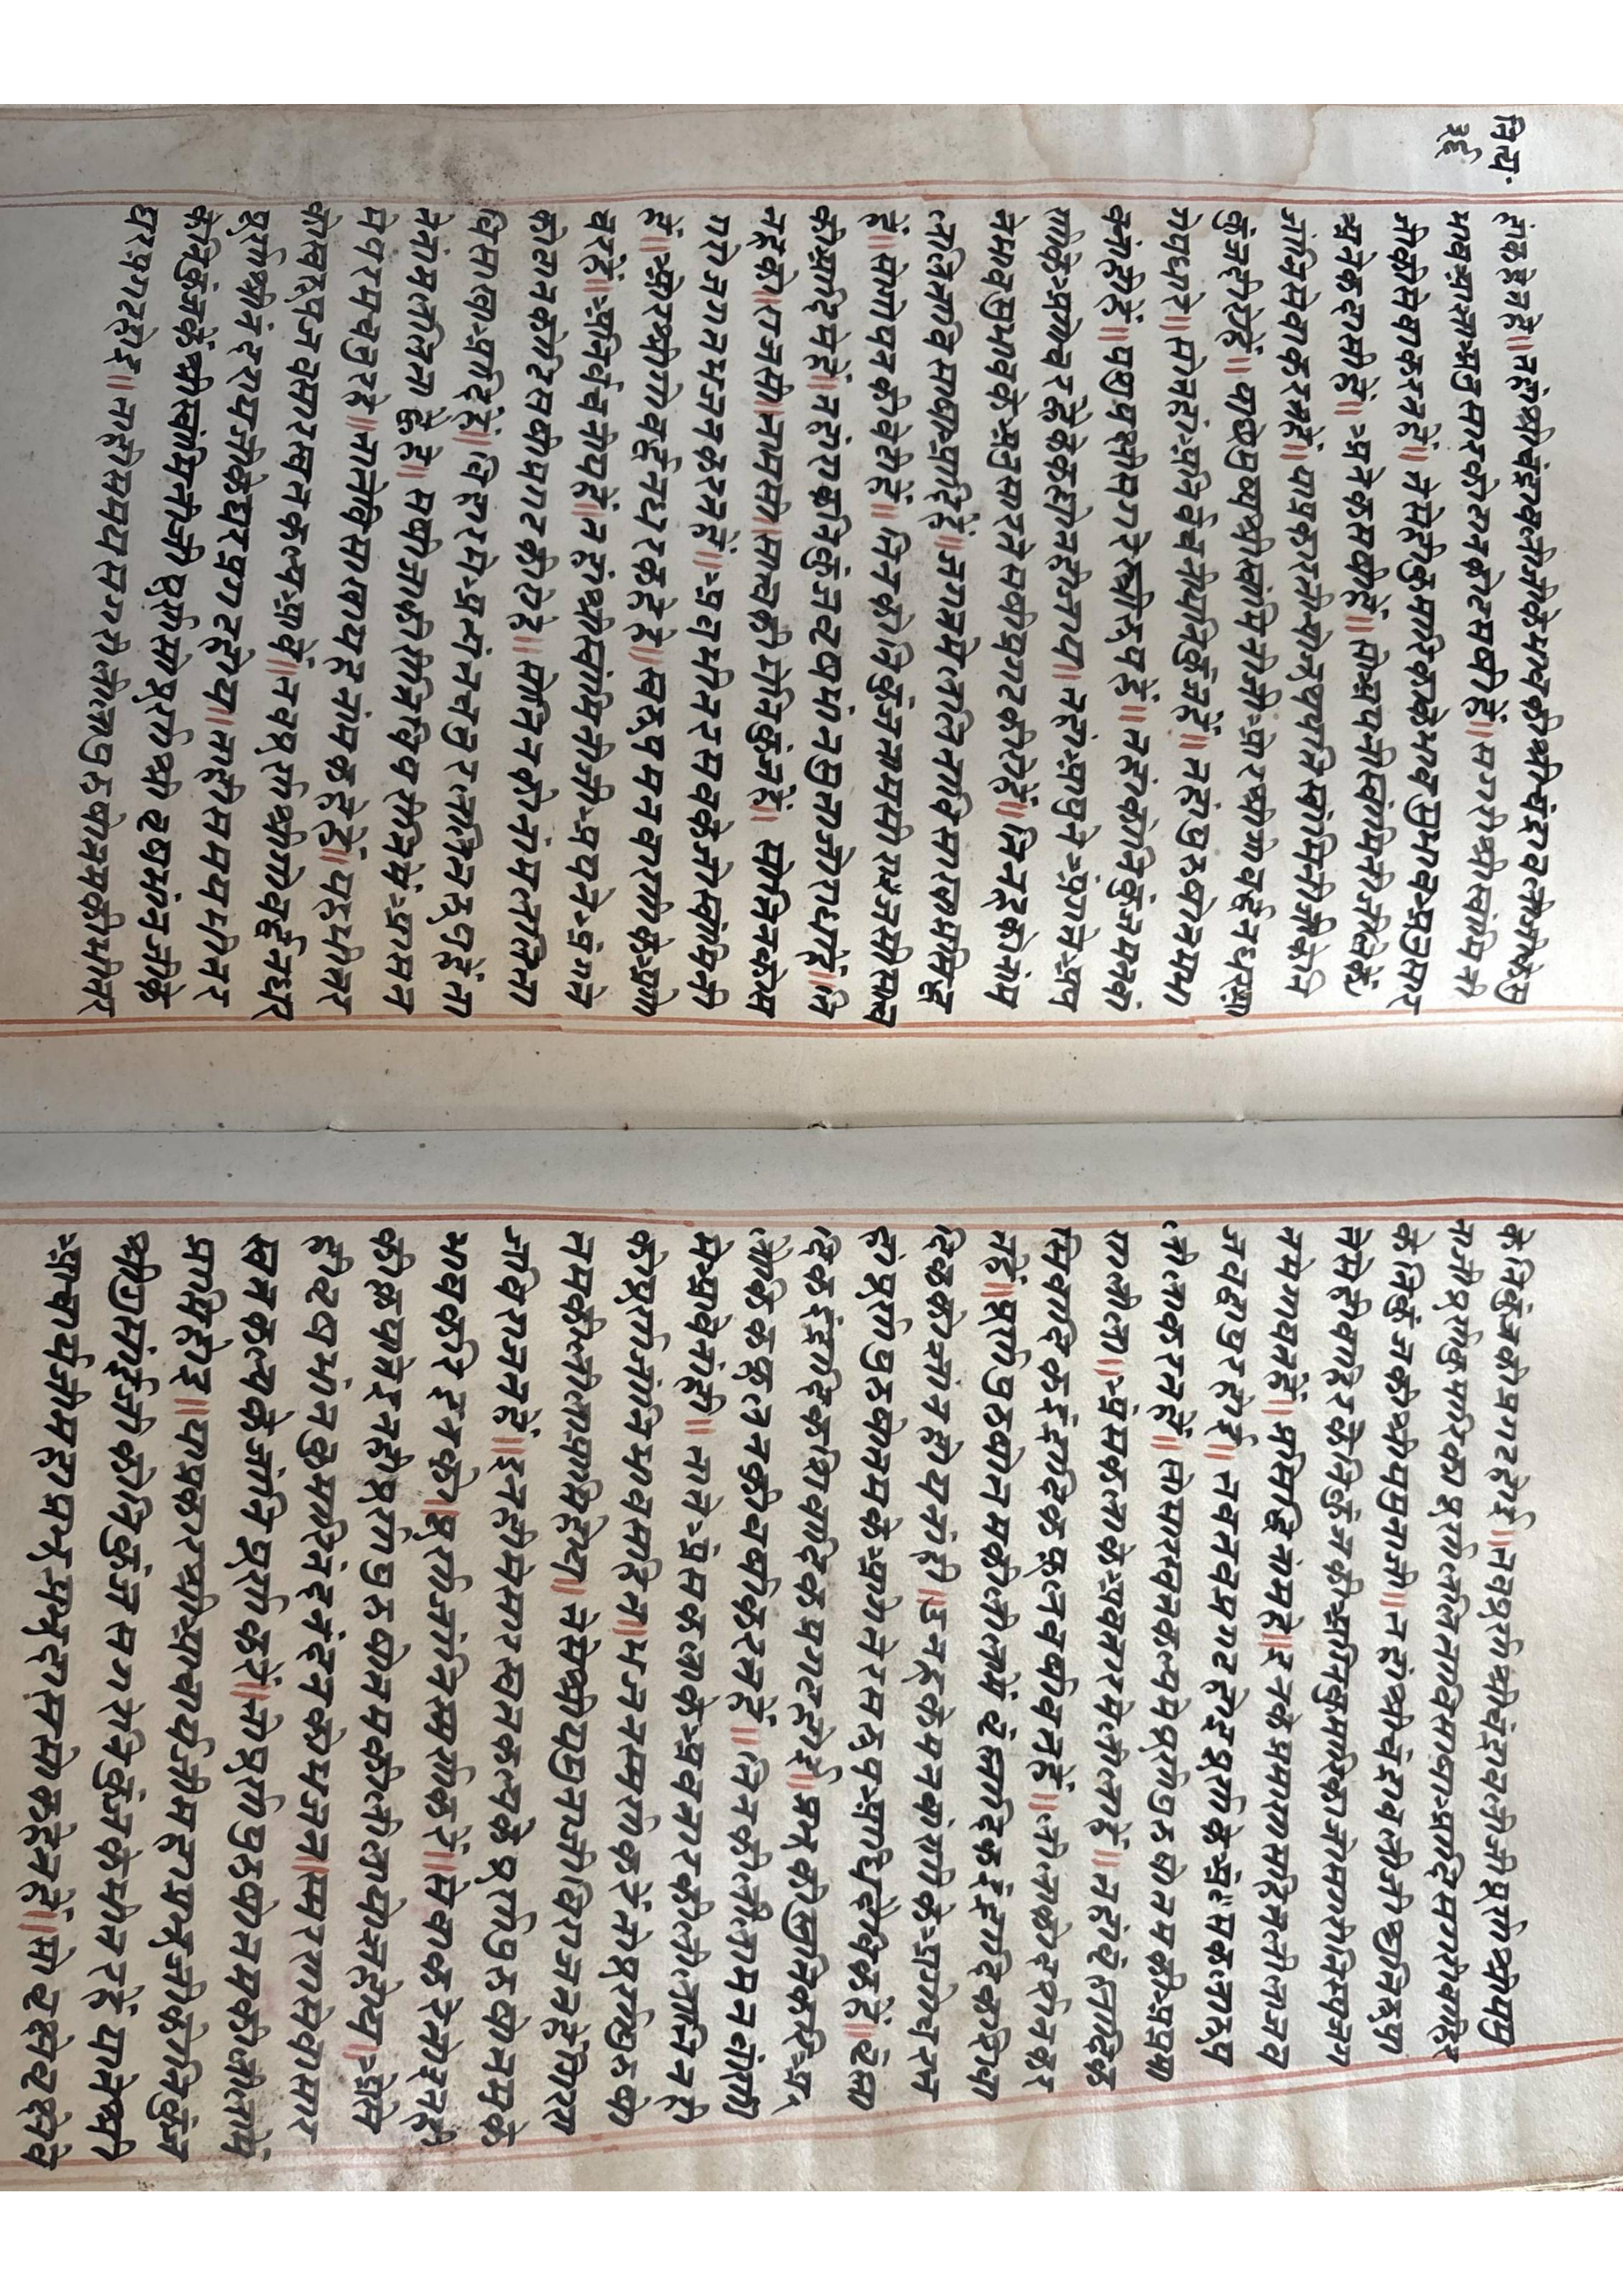 नित्य॰
३६
हांकहेतहे॥तहांश्रीचंद्रावलीजीकेभावकीश्रीचंद्रावलीजीकेसु
भावआज्ञाअनुसारकीतनकोटसखीहें॥सगरीश्रीस्वामिनी
जीकीसेवाकरतहें॥तेसेहीकुमारिकाकेभावसुभावअनुसार
अनेकदासीहें॥अनेकसखीहें॥सोअपनीस्वामिनीजीकें
संगसेवाकरतहें॥याप्रकारतीनोजुथपतिस्वामिनीजीकीनि
कुंजनिरेहें॥पाछेमुख्यश्रीस्वामिनीजीओरश्रीगोवर्द्धनधरआ
येपधारे॥सोतहांअनिर्वचनीयनिकुंजहें॥तहांपुरुषोत्तममा
वनांहीहें॥पशुपक्षीसगरेस्त्रीरूपहें॥तहांकीनिकुंजमनवां
णीकेअगोचरहेकेकहीनहीजाय॥तहांआपुनेअंगतेअप
नेभावसुभावकेअनुसारतेसखीप्रगटकीरीहें॥तिनहूकोनांम
ललिताविसाखाआदिहें॥जगतमेललिताविसाखामामिहू
हें॥सोगोपनकीबेटीहें॥तिनकीनिकुंजतामसीराजसीसात्व
कीआदिमेंहें॥तहांराकनिकुंजवृषभांनसुताजोराधाहें॥ति
नहूको॥राजसी॥तामसी॥सात्वकीमेनिकुंजहें॥सोतिनकोस
गरोजगतभजनकरतहें॥अवभीतरसबकेजोस्वामिनी
हें॥ओरश्रीगोवर्द्धनधरकहेहे॥स्वरूपमनवाणीकेअगो
चरहें॥अनिर्वचनीयहें॥तहांश्रीस्वामिनीजीअपनेअंगते
कीतनकोटिसखीप्रगटकीरीहे॥सोतिनकोनांमललिता
विसाखाआदिहें॥विहारमेअत्यंतचतुरललितरूपहेंता
तेनांमललिताकेहें॥सखीजाकीरीतिविपरीतिमेंआसन
मेपरमचतुरहे॥तातेविसाखायहनांमकहेहें॥यहभीतर
कोस्वरूपजबसारस्वतकल्पआवें॥तबपूर्णश्रीगोवर्द्धनधर
पूर्णश्रीनंदरायजीकेघरप्रगटहोय॥ताहीसमयभीतर
कीनिकुंजकेश्रीस्वामिनीजीपूर्णसोपूर्णश्रीवृषभांनजीके
घरप्रगटहोइ॥ताहीसमयसगरीलीलापुरुषोत्तमकीभीतर
केनिकुंजकीप्रगटहोई॥तबपूर्णश्रीचंद्रावलीजीपूर्णश्रीयमु
नाजीपूर्णकुमारिकापूर्णललिताविसाखाआदिसगरीबाहिर
केनिकुंजकीश्रीयमुनाजी॥तहांश्रीचंद्रावलीजीछानिरूपा
तेसेहीबाहेरकेनिकुंजकीअग्निकुमारिकाजोसगरीनित्यजग
तमेगावतहें॥प्रसिद्धनांमहे॥इनकेप्रमाणसहितलीलाजब
जबद्वापुरहोई॥तबतबप्रगटहोइपूर्णकेअंसकलारूप
लीलाकरतहें॥सोसारस्वतकल्पमेपूर्णपुरुषोत्तमकीप्राग
तलीला॥अंसकलाकेअवतारमेलीलाहें॥तहांब्रह्मादिक
सिवादिकइंद्रादिकफूलनवर्षावतहें॥लीलाकोदर्शनकर
तहें॥पूर्णपुरुषोत्तमकीलीलामें ब्रह्मादिकइंद्रादिककीसिवा
दिककोज्ञांनहीयनांही॥इनहूकेमनवांणीकेअगोचररस
हीपूर्णपुरुषोत्तमकेआगेतेरसरूपआधिदेविकहें॥ब्रह्मा
दिकइंद्रादिकशिवादिकप्रगटहोई॥प्रभुकीस्तुतिकरिआ
लोकिकफूलनकीबर्षाकरतहें॥तिनकीलीलामनवांणी
मेआवेनांही॥तातेअंसकलाकेअवतारकीलीलातिनही
कोपूर्णजांनिभावसहित॥भजनस्मरणकरेंतोपूर्णपुरुषो
त्तमकीलीलाप्राप्तिहोय॥तेसेश्रीयमुनाजीबिराजतहेंगिररा
जबिराजतहें॥इनहीमेसारस्वतकल्पकेपूर्णपुरुषोत्तमके
भावकरिइनको॥पूर्णजांनिस्मरणकरें॥सेवाकरेतोइनही
कीकृपातेइनहीपूर्णपुरुषोत्तमकीलीलाकोज्ञांनहोय॥अेसे
हीवृषभांनकुमारिनंदनंदनकोभजन॥स्मरणसेवासार
स्वतकल्पकेजांनिपूर्णकरें॥तोपूर्णपुरुषोत्तमकीलीलामें
प्राप्तिहोइ॥याप्रकारश्रीआचार्यजीमहाप्रभुजीकीनिकुंज
श्रीगुसांईजीकीनिकुंजसगरीनिकुंजकेभीतरहें याते श्री
आचार्यजीमहाप्रभूनप्रभूदाससोंकहेतहें॥सोवृक्षेवृक्षेवे